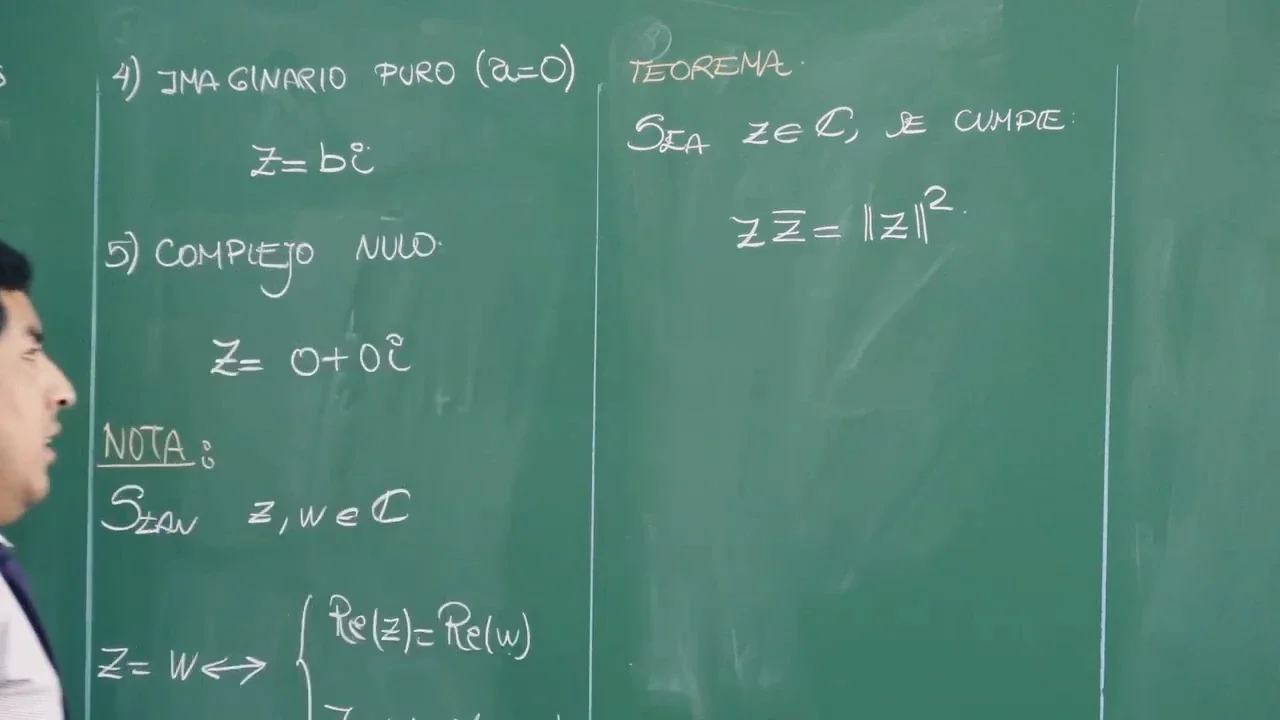 4) IMAGINARIO PURO (a=0)
Z=bi
5) COMPLEJO NULO.
Z= 0+0i
NOTA:
SEAN z, w ∈ ℂ
Z= W ↔ { Re(z)=Re(w)
TEOREMA.
SEA z∈ℂ, SE CUMPLE:
z z̅ = ‖z‖².